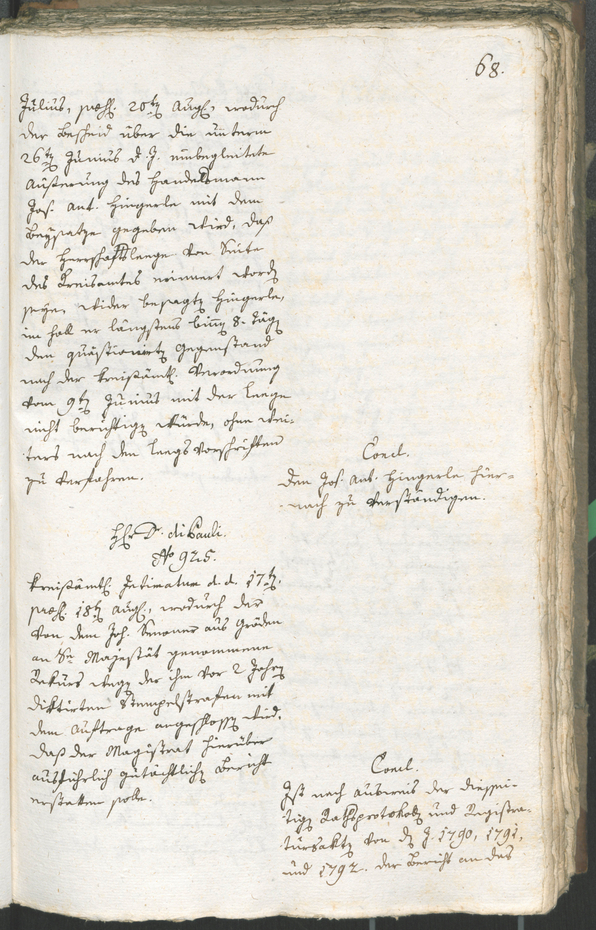 68.
Julius, præs. 20ten Aug., wodurch
der Bescheid über die unterm
26ten Junius d. J. einbegleitete
Äußerung des Handelsmann
Jos. Ant. Hingerle mit dem
Beysatze gegeben wird, daß
der Herrschaftslange von Seite
des Kreisamtes erinnert worden
seyen, wider besagten Hingerle,
im fall er längstens binnen 8. Tägen
den quästionirten Gegenstand
nach der kreisämtl. Verordnung
vom 9ten Junius mit der Lange
nicht berichtigen würde, ohne wei-
ters nach den Vorschriften
zu verfahren.
Concl.
Den Jos. Ant. Hingerle hier-
nach zu verständigen.
Hr. D. di Pauli.
No 925.
Kreisämtl. Intimatum d. d. 17ten,
præs. 18ten Aug., wodurch der
von dem Joh. Senoner aus Gröden
an Se Majestät genommene
Rekurs wegen der ihm vor 2 Jahren
diktirten Stempelstrafen mit
dem Auftrage angeschlossen wird,
daß der Magistrat hierüber
ausführlich gutächtlichen Bericht
erstatten solle.
Concl.
Ist nach Ausweis der diessei-
tigen Rathsprotokolle und Registra-
tursakten von den J. 1790, 1791,
und 1792. der Bericht an das